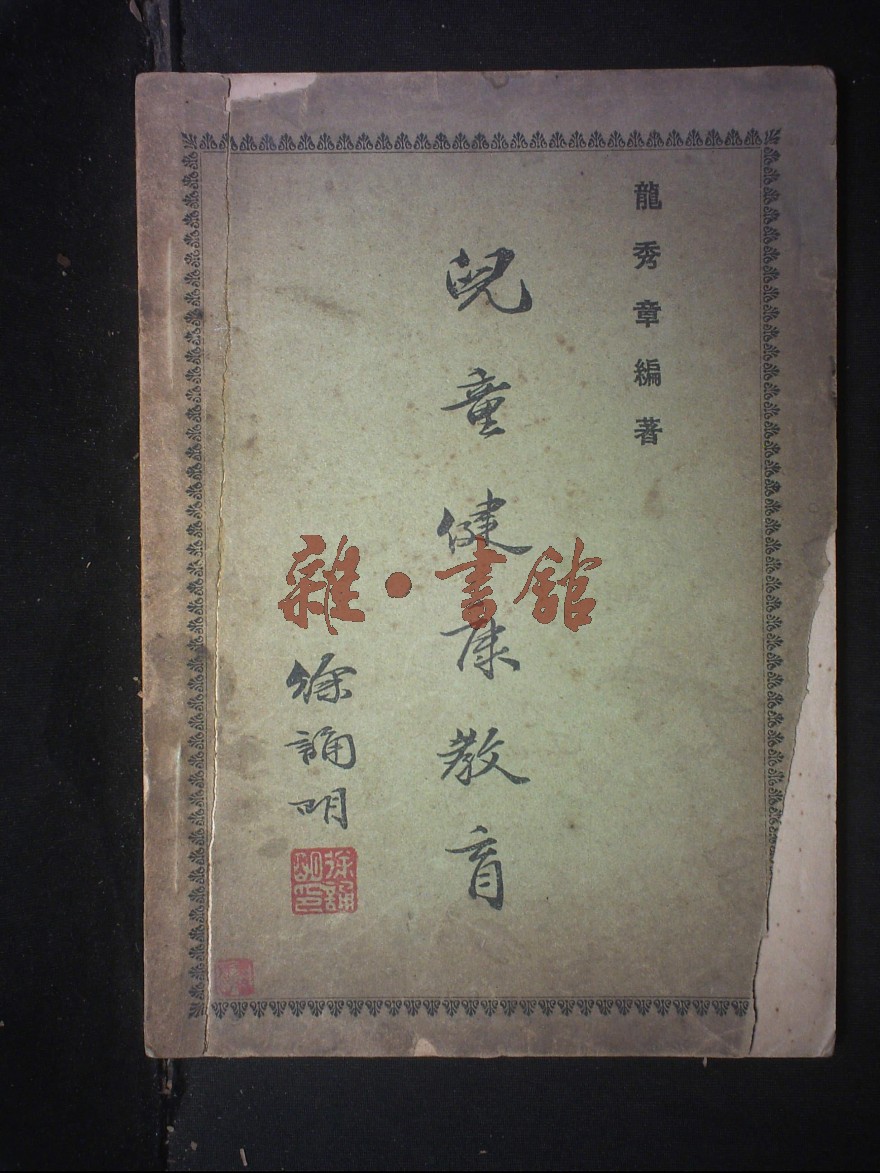 龍秀章編著
兒童健康教育
徐誦明
徐誦明印
雜·書館